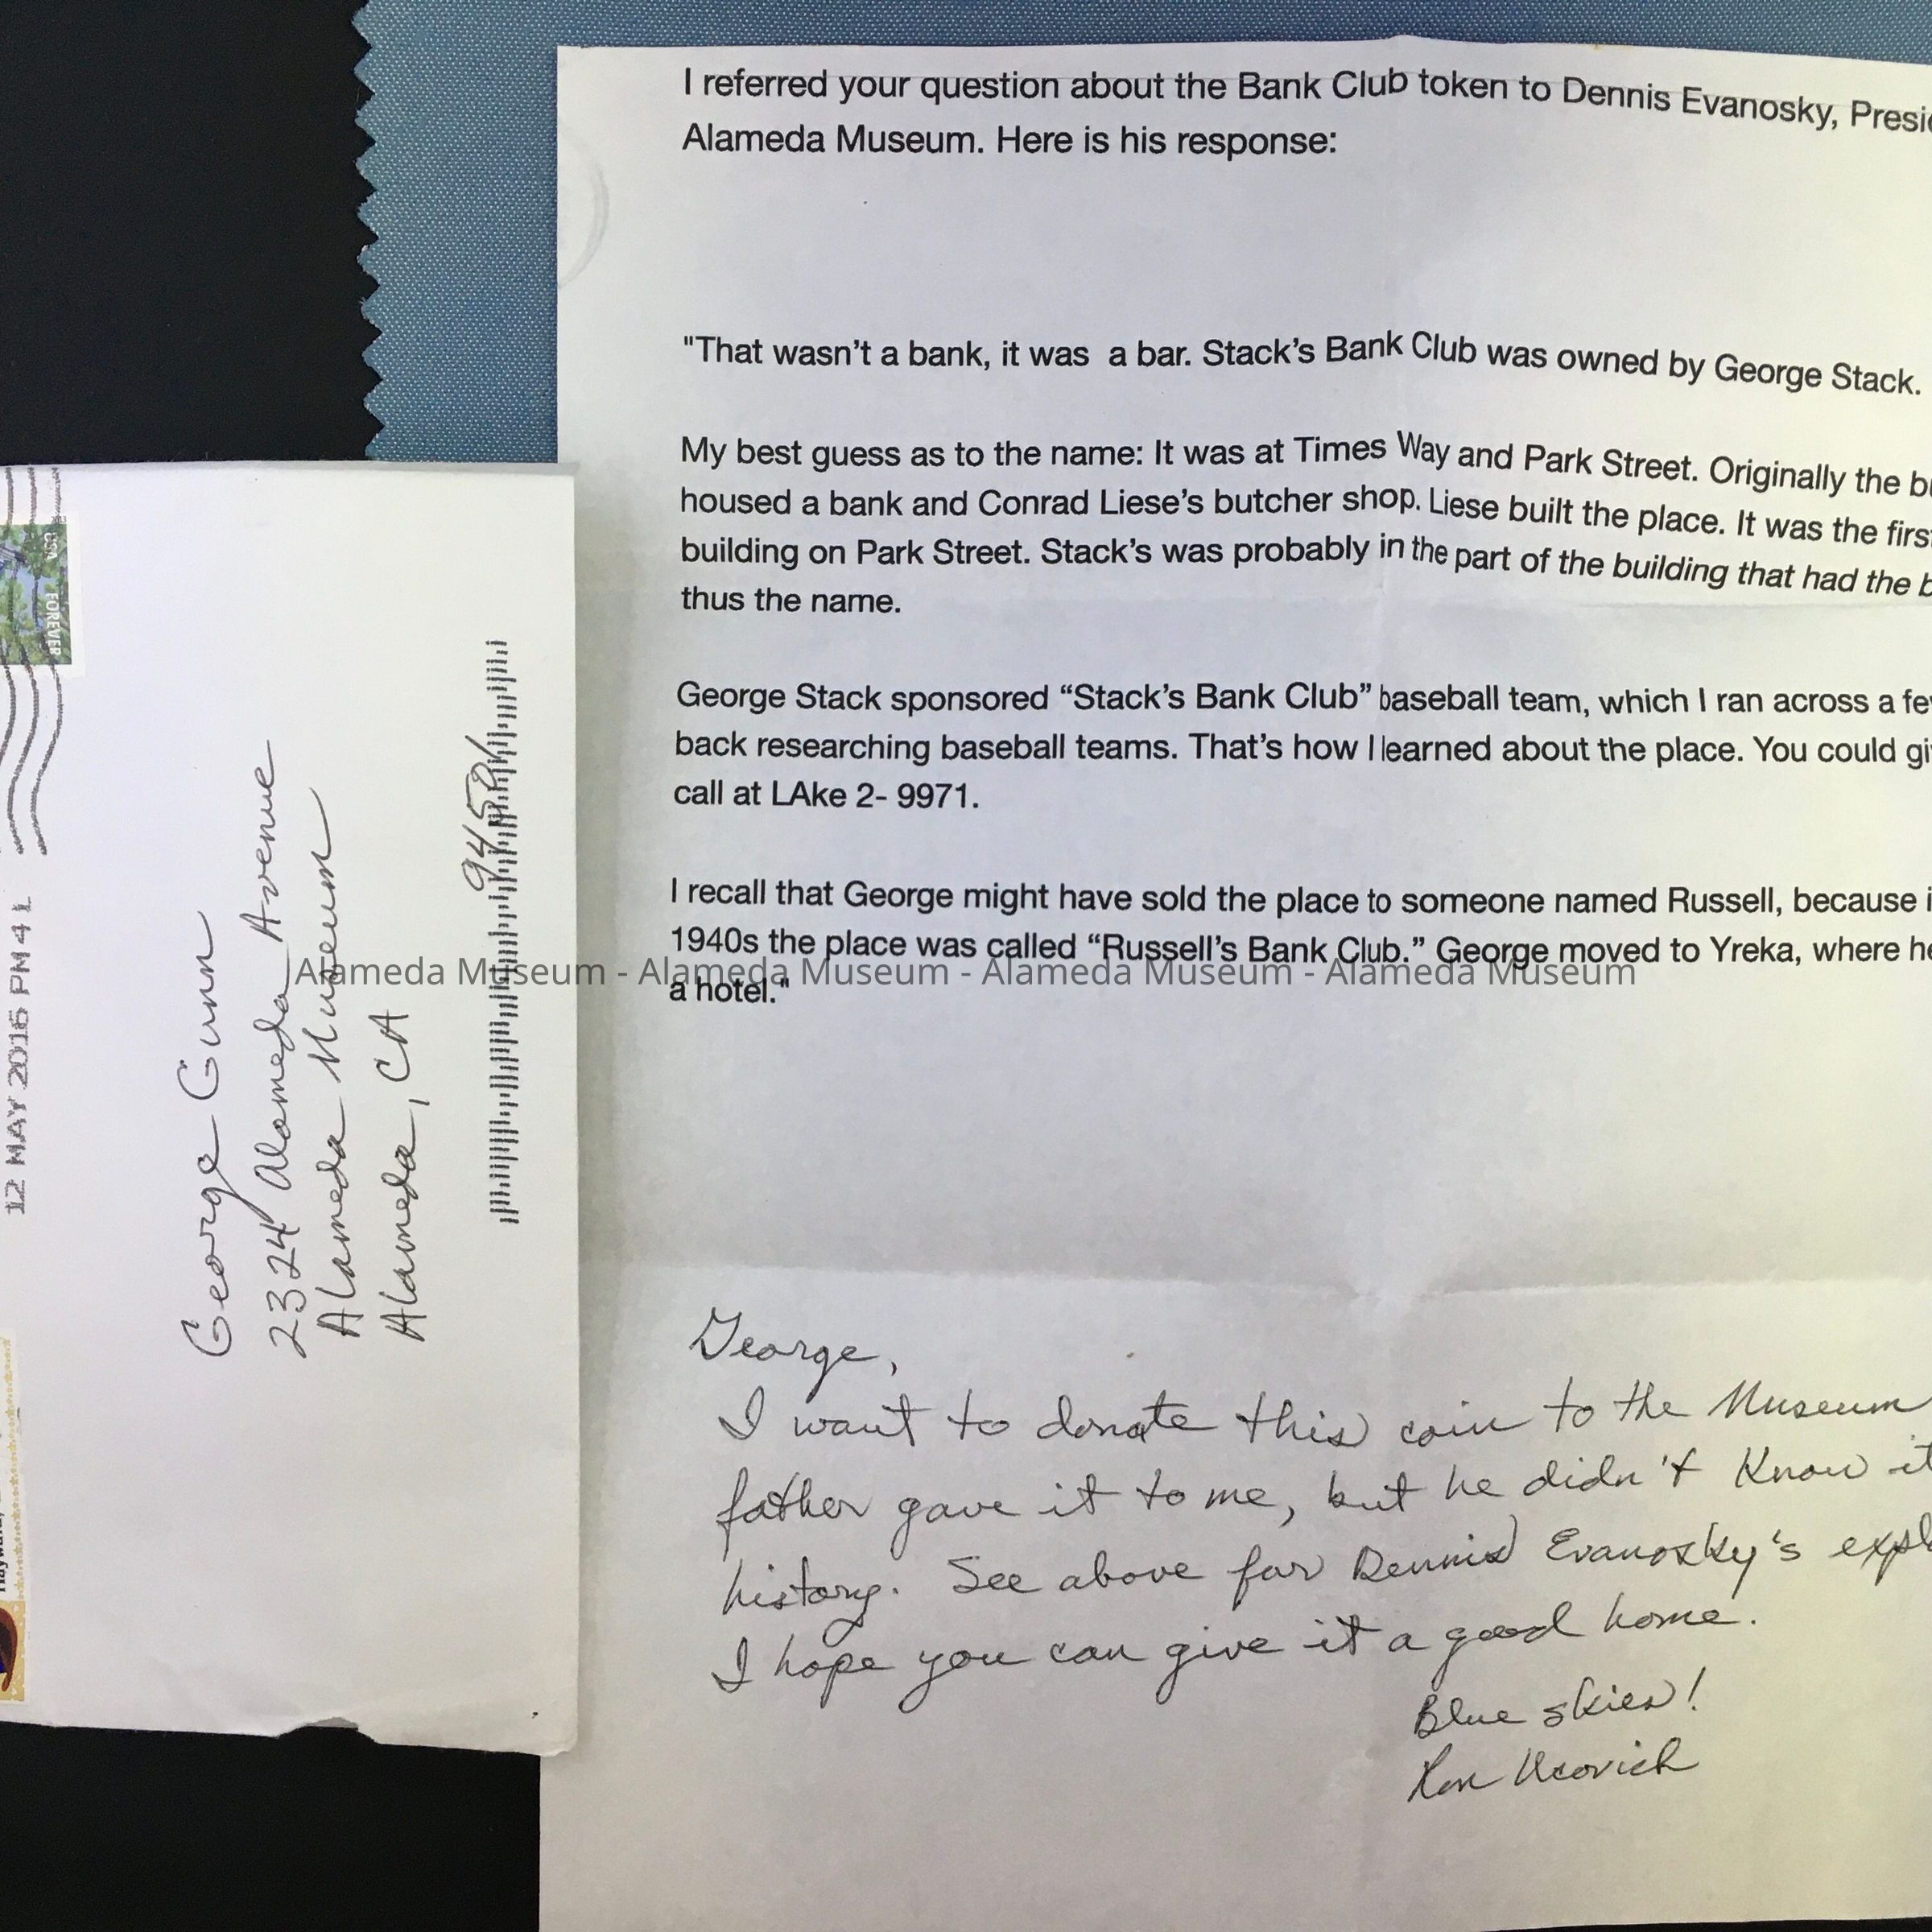 I referred your question about the Bank Club token to Dennis Evanosky, Presi
Alameda Museum. Here is his response:
"That wasn't a bank, it was a bar. Stack's Bank Club was owned by George Stack.
My best guess as to the name: It was at Times Way and Park Street. Originally the b
housed a bank and Conrad Liese's butcher shop. Liese built the place. It was the firs
building on Park Street. Stack's was probably in the part of the building that had the b
thus the name.
George Stack sponsored “Stack's Bank Club” baseball team, which I ran across a fe
back researching baseball teams. That's how I learned about the place. You could gi
call at LAke 2- 9971.
I recall that George might have sold the place to someone named Russell, because i
1940s the place was called “Russell's Bank Club.” George moved to Yreka, where he
a hotel."
George,
I want to donate this coin to the Museum
father gave it to me, but he didn't know it
history. See above for Dennis Evanosky's expl
I hope you can give it a good home.
Blue skies!
Ron Ucovich
George Gunn
2324 Alameda Avenue
Alameda Museum
Alameda, CA
94501
12 MAY 2016 PM 4 L
USA FOREVER
Alameda Museum - Alameda Museum - Alameda Museum - Alameda Museum